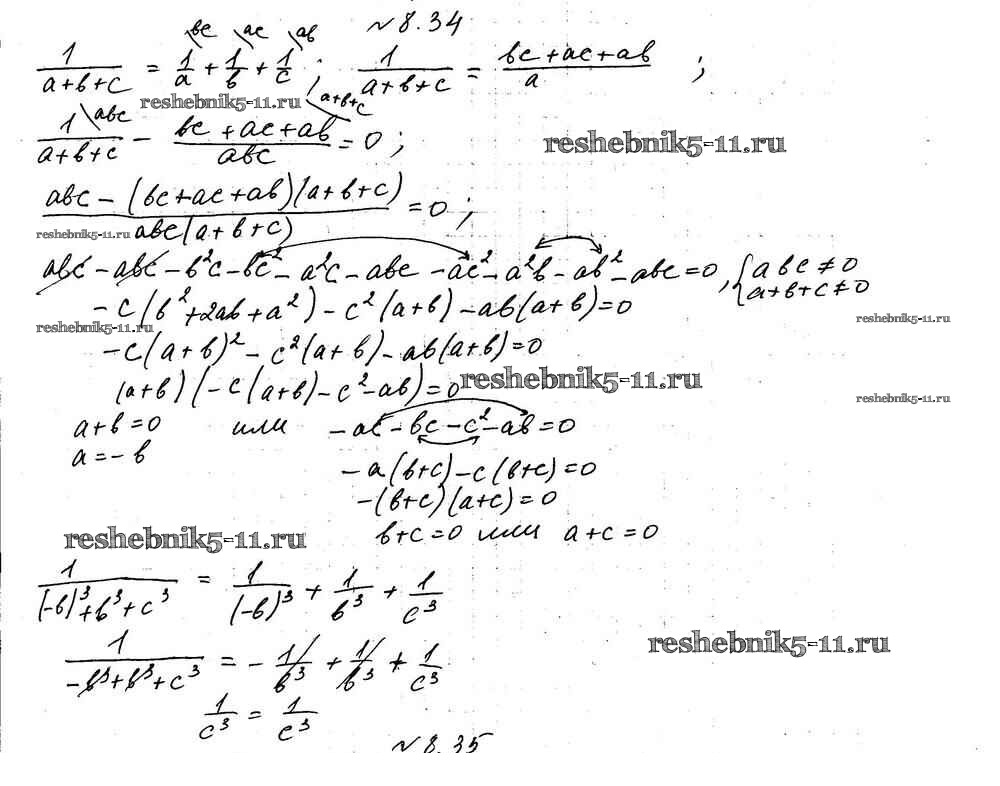 № 8.34
\bc \ac \ab
1/(a+b+c) = 1/a + 1/b + 1/c ; 1/(a+b+c) = (bc+ac+ab)/a ;
reshebnik5-11.ru
1\abc/(a+b+c) - (bc+ac+ab)\a+b+c/abc = 0 ;
reshebnik5-11.ru
(abc - (bc+ac+ab)(a+b+c))/(abc(a+b+c)) = 0 ;
reshebnik5-11.ru
abc - abc - b²c - bc² - a²c - abc - ac² - a²b - ab² - abc = 0 , { abc ≠ 0
a+b+c ≠ 0
-c(b²+2ab+a²) - c²(a+b) - ab(a+b) = 0
reshebnik5-11.ru
reshebnik5-11.ru
-c(a+b)² - c²(a+b) - ab(a+b) = 0
(a+b)(-c(a+b) - c² - ab) = 0
reshebnik5-11.ru
reshebnik5-11.ru
a+b=0 или -ac - bc - c² - ab = 0
a = -b
-a(b+c) - c(b+c) = 0
-(b+c)(a+c) = 0
b+c=0 или a+c=0
reshebnik5-11.ru
1/((-b)³+b³+c³) = 1/(-b)³ + 1/b³ + 1/c³
reshebnik5-11.ru
1/(-b³+b³+c³) = -1/b³ + 1/b³ + 1/c³
1/c³ = 1/c³
№ 8.35